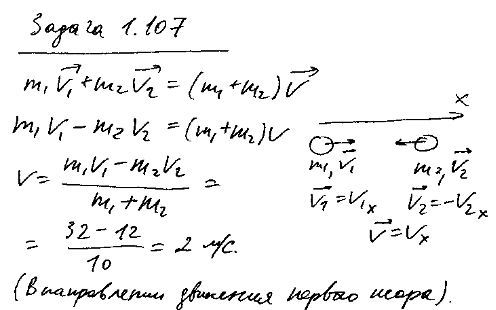 Задача 1.107
m₁V⃗₁ + m₂V⃗₂ = (m₁+m₂)V⃗
m₁V₁ − m₂V₂ = (m₁+m₂)V
V = (m₁V₁ − m₂V₂)/(m₁+m₂) =
= (32 − 12)/10 = 2 м/с.
(В направлении движения первого шара).
x
m₁V⃗₁ m₂, V⃗₂
V⃗₁ = V₁ₓ V⃗₂ = −V₂ₓ
V⃗ = Vₓ